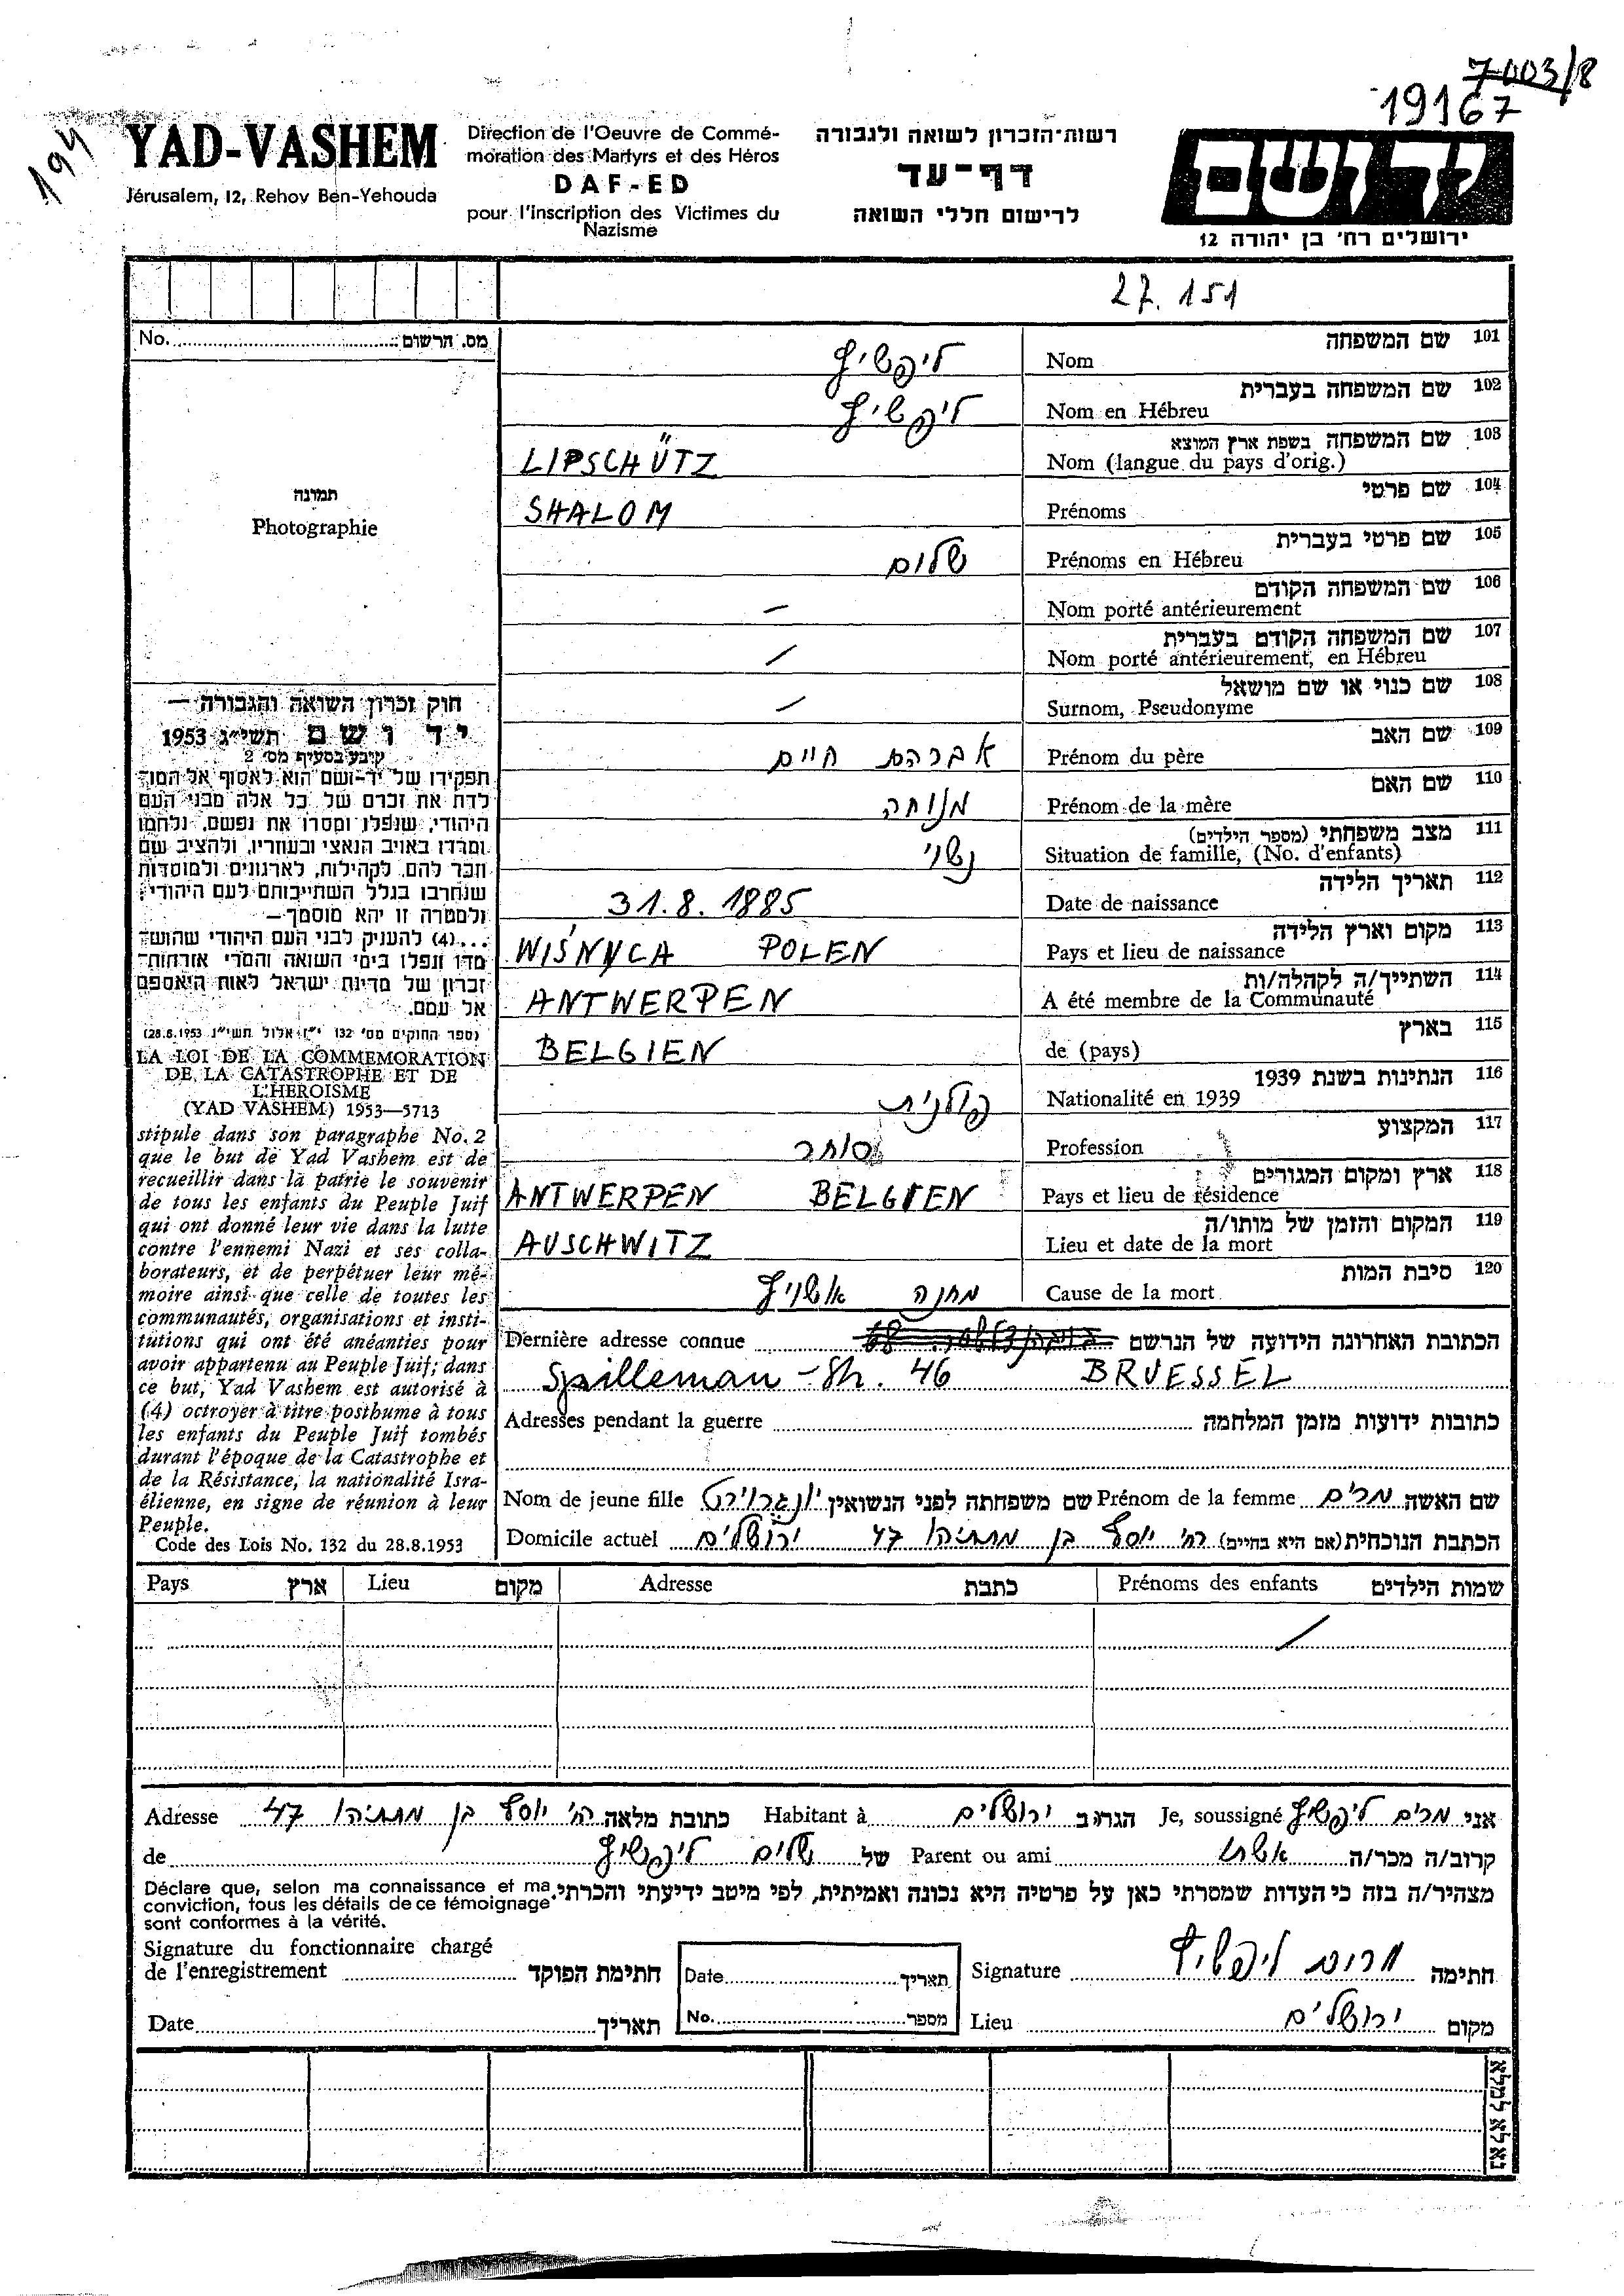 7003/8
19167
194
YAD-VASHEM
Jérusalem, 12, Rehov Ben-Yehouda
Direction de l'Oeuvre de Commé-
moration des Martyrs et des Héros
DAF-ED
pour l'inscription des Victimes du
Nazisme
רשות-הזכרון לשואה ולגבורה
דף-עד
לרישום חללי השואה
יד ושם
ירושלים רח' בן יהודה 12
27.151
No. מס. הרשום
תמונה
Photographie
101 שם המשפחה
Nom ליפשיץ
102 שם המשפחה בעברית
Nom en Hébreu ליפשיץ
103 שם המשפחה בשפת ארץ המוצא
Nom (langue du pays d'orig.) LIPSCHÜTZ
104 שם פרטי
Prénoms SHALOM
105 שם פרטי בעברית
Prénoms en Hébreu שלום
106 שם המשפחה הקודם
Nom porté antérieurement –
107 שם המשפחה הקודם בעברית
Nom porté antérieurement, en Hébreu /
108 שם כנוי או שם מושאל
Surnom, Pseudonyme /
109 שם האב
Prénom du père אברהם חיים
110 שם האם
Prénom de la mère מנוחה
111 מצב משפחתי (מספר הילדים)
Situation de famille, (No. d'enfants) נשוי
112 תאריך הלידה
Date de naissance 31.8.1885
113 מקום וארץ הלידה
Pays et lieu de naissance WIŚNYCA POLEN
114 השתייך/ה לקהלה/ות
A été membre de la Communauté ANTWERPEN
115 בארץ
de (pays) BELGIEN
116 הנתינות בשנת 1939
Nationalité en 1939 פולנית
117 המקצוע
Profession סוחר
118 ארץ ומקום המגורים
Pays et lieu de résidence ANTWERPEN BELGIEN
119 המקום והזמן של מותו/ה
Lieu et date de la mort AUSCHWITZ
120 סיבת המות
Cause de la mort מחנה אושויץ
חוק זכרון השואה והגבורה –
יד ושם תשי"ג 1953
קובע בסעיף מס' 2
תפקידו של יד-ושם הוא לאסוף אל המו־
לדת את זכרם של כל אלה מבני העם
היהודי, שנפלו ומסרו את נפשם, נלחמו
ומרדו באויב הנאצי ובעוזריו, ולהציב שם
וזכר להם, לקהילות, לארגונים ולמוסדות
שנחרבו בגלל השתייכותם לעם היהודי;
ולמטרה זו יהא מוסמך–
...(4) להעניק לבני העם היהודי שהוש־
מדו ונפלו בימי השואה והמרי אזרחות־
זכרון של מדינת ישראל לאות היאספם
אל עמם.
(ספר החוקים מס' 132 י"ז אלול תשי"ג 28.8.1953)
LA LOI DE LA COMMEMORATION
DE LA CATASTROPHE ET DE
L'HEROISME
(YAD VASHEM) 1953—5713
stipule dans son paragraphe No. 2
que le but de Yad Vashem est de
recueillir dans la patrie le souvenir
de tous les enfants du Peuple Juif
qui ont donné leur vie dans la lutte
contre l'ennemi Nazi et ses colla-
borateurs, et de perpétuer leur mé-
moire ainsi que celle de toutes les
communautés, organisations et insti-
tutions qui ont été anéanties pour
avoir appartenu au Peuple Juif; dans
ce but, Yad Vashem est autorisé à
(4) octroyer à titre posthume à tous
les enfants du Peuple Juif tombés
durant l'époque de la Catastrophe et
de la Résistance, la nationalité Isra-
élienne, en signe de réunion à leur
Peuple.
Code des Lois No. 132 du 28.8.1953
Dernière adresse connue 68 הכתובת האחרונה הידועה של הנרשם
Spilleman-Str. 46 BRUESSEL
Adresses pendant la guerre כתובות ידועות מזמן המלחמה
Nom de jeune fille שם משפחתה לפני הנשואין Prénom de la femme מרים שם האשה
Domicile actuel הכתבת הנוכחית (אם היא בחיים) רח' יוסף בן מתתיהו 47 ירושלים
Pays ארץ Lieu מקום Adresse כתבת Prénoms des enfants שמות הילדים
/
אני מרים ליפשיץ Je, soussigné הגר/ה ב ירושלים Habitant à כתובת מלאה רח' יוסף בן מתתיהו 47 Adresse
קרוב/ה מכר/ה אשתו Parent ou ami של שלום ליפשיץ de
Déclare que, selon ma connaissance et ma
conviction, tous les détails de ce témoignage
sont conformes à la vérité.
מצהיר/ה בזה כי העדות שמסרתי כאן על פרטיה היא נכונה ואמיתית, לפי מיטב ידיעתי והכרתי.
Signature du fonctionnaire chargé
de l'enregistrement חתימת הפוקד
Date תאריך
Signature מרים ליפשיץ חתימה
Date תאריך
No. מספר
Lieu ירושלים מקום
נא לא למלא